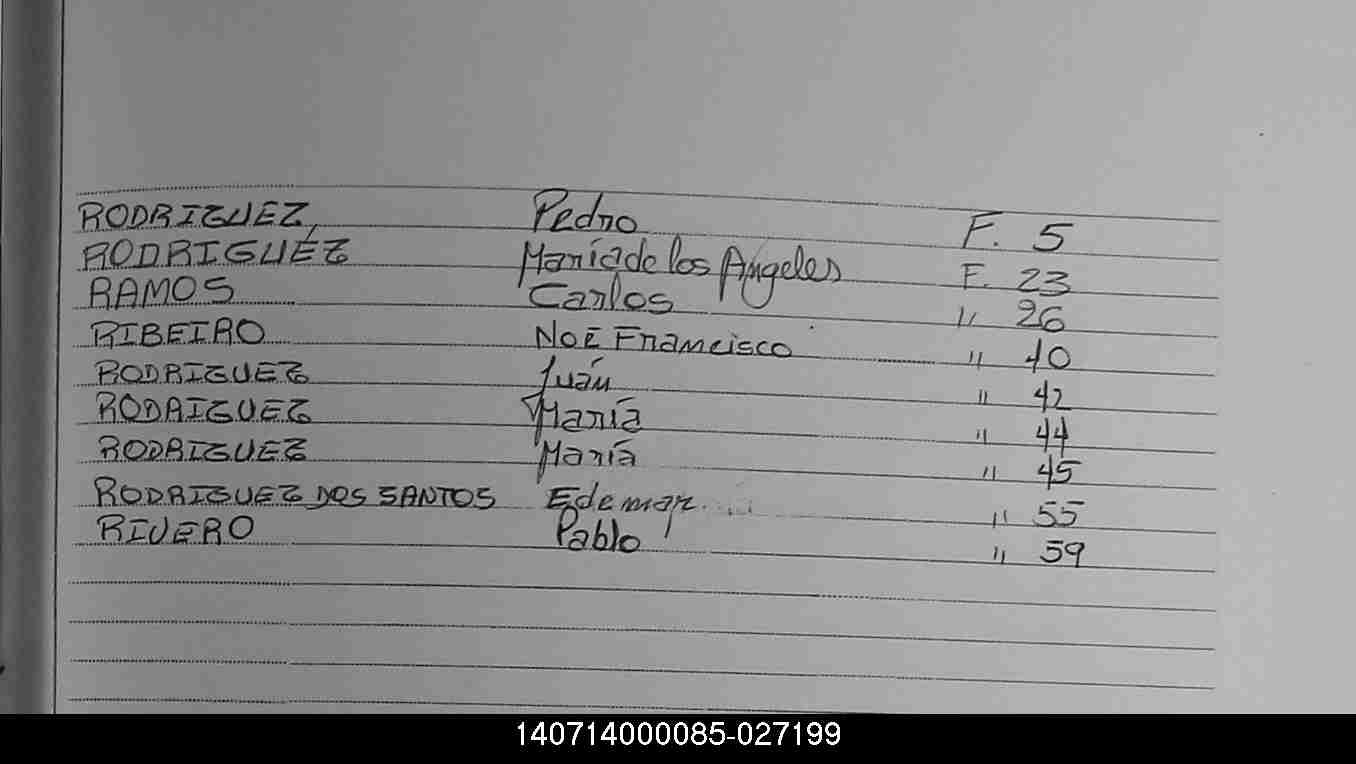 RODRIGUEZ, Pedro F. 5
RODRIGUÉZ María de los Angeles F. 23
RAMOS Carlos " 26
RIBEIRO NOE Francisco " 40
RODRIGUEZ Juán " 42
RODRIGUEZ María " 44
RODRIGUEZ María " 45
RODRIGUEZ DOS SANTOS Edemar " 55
RIVERO Pablo " 59
140714000085-027199